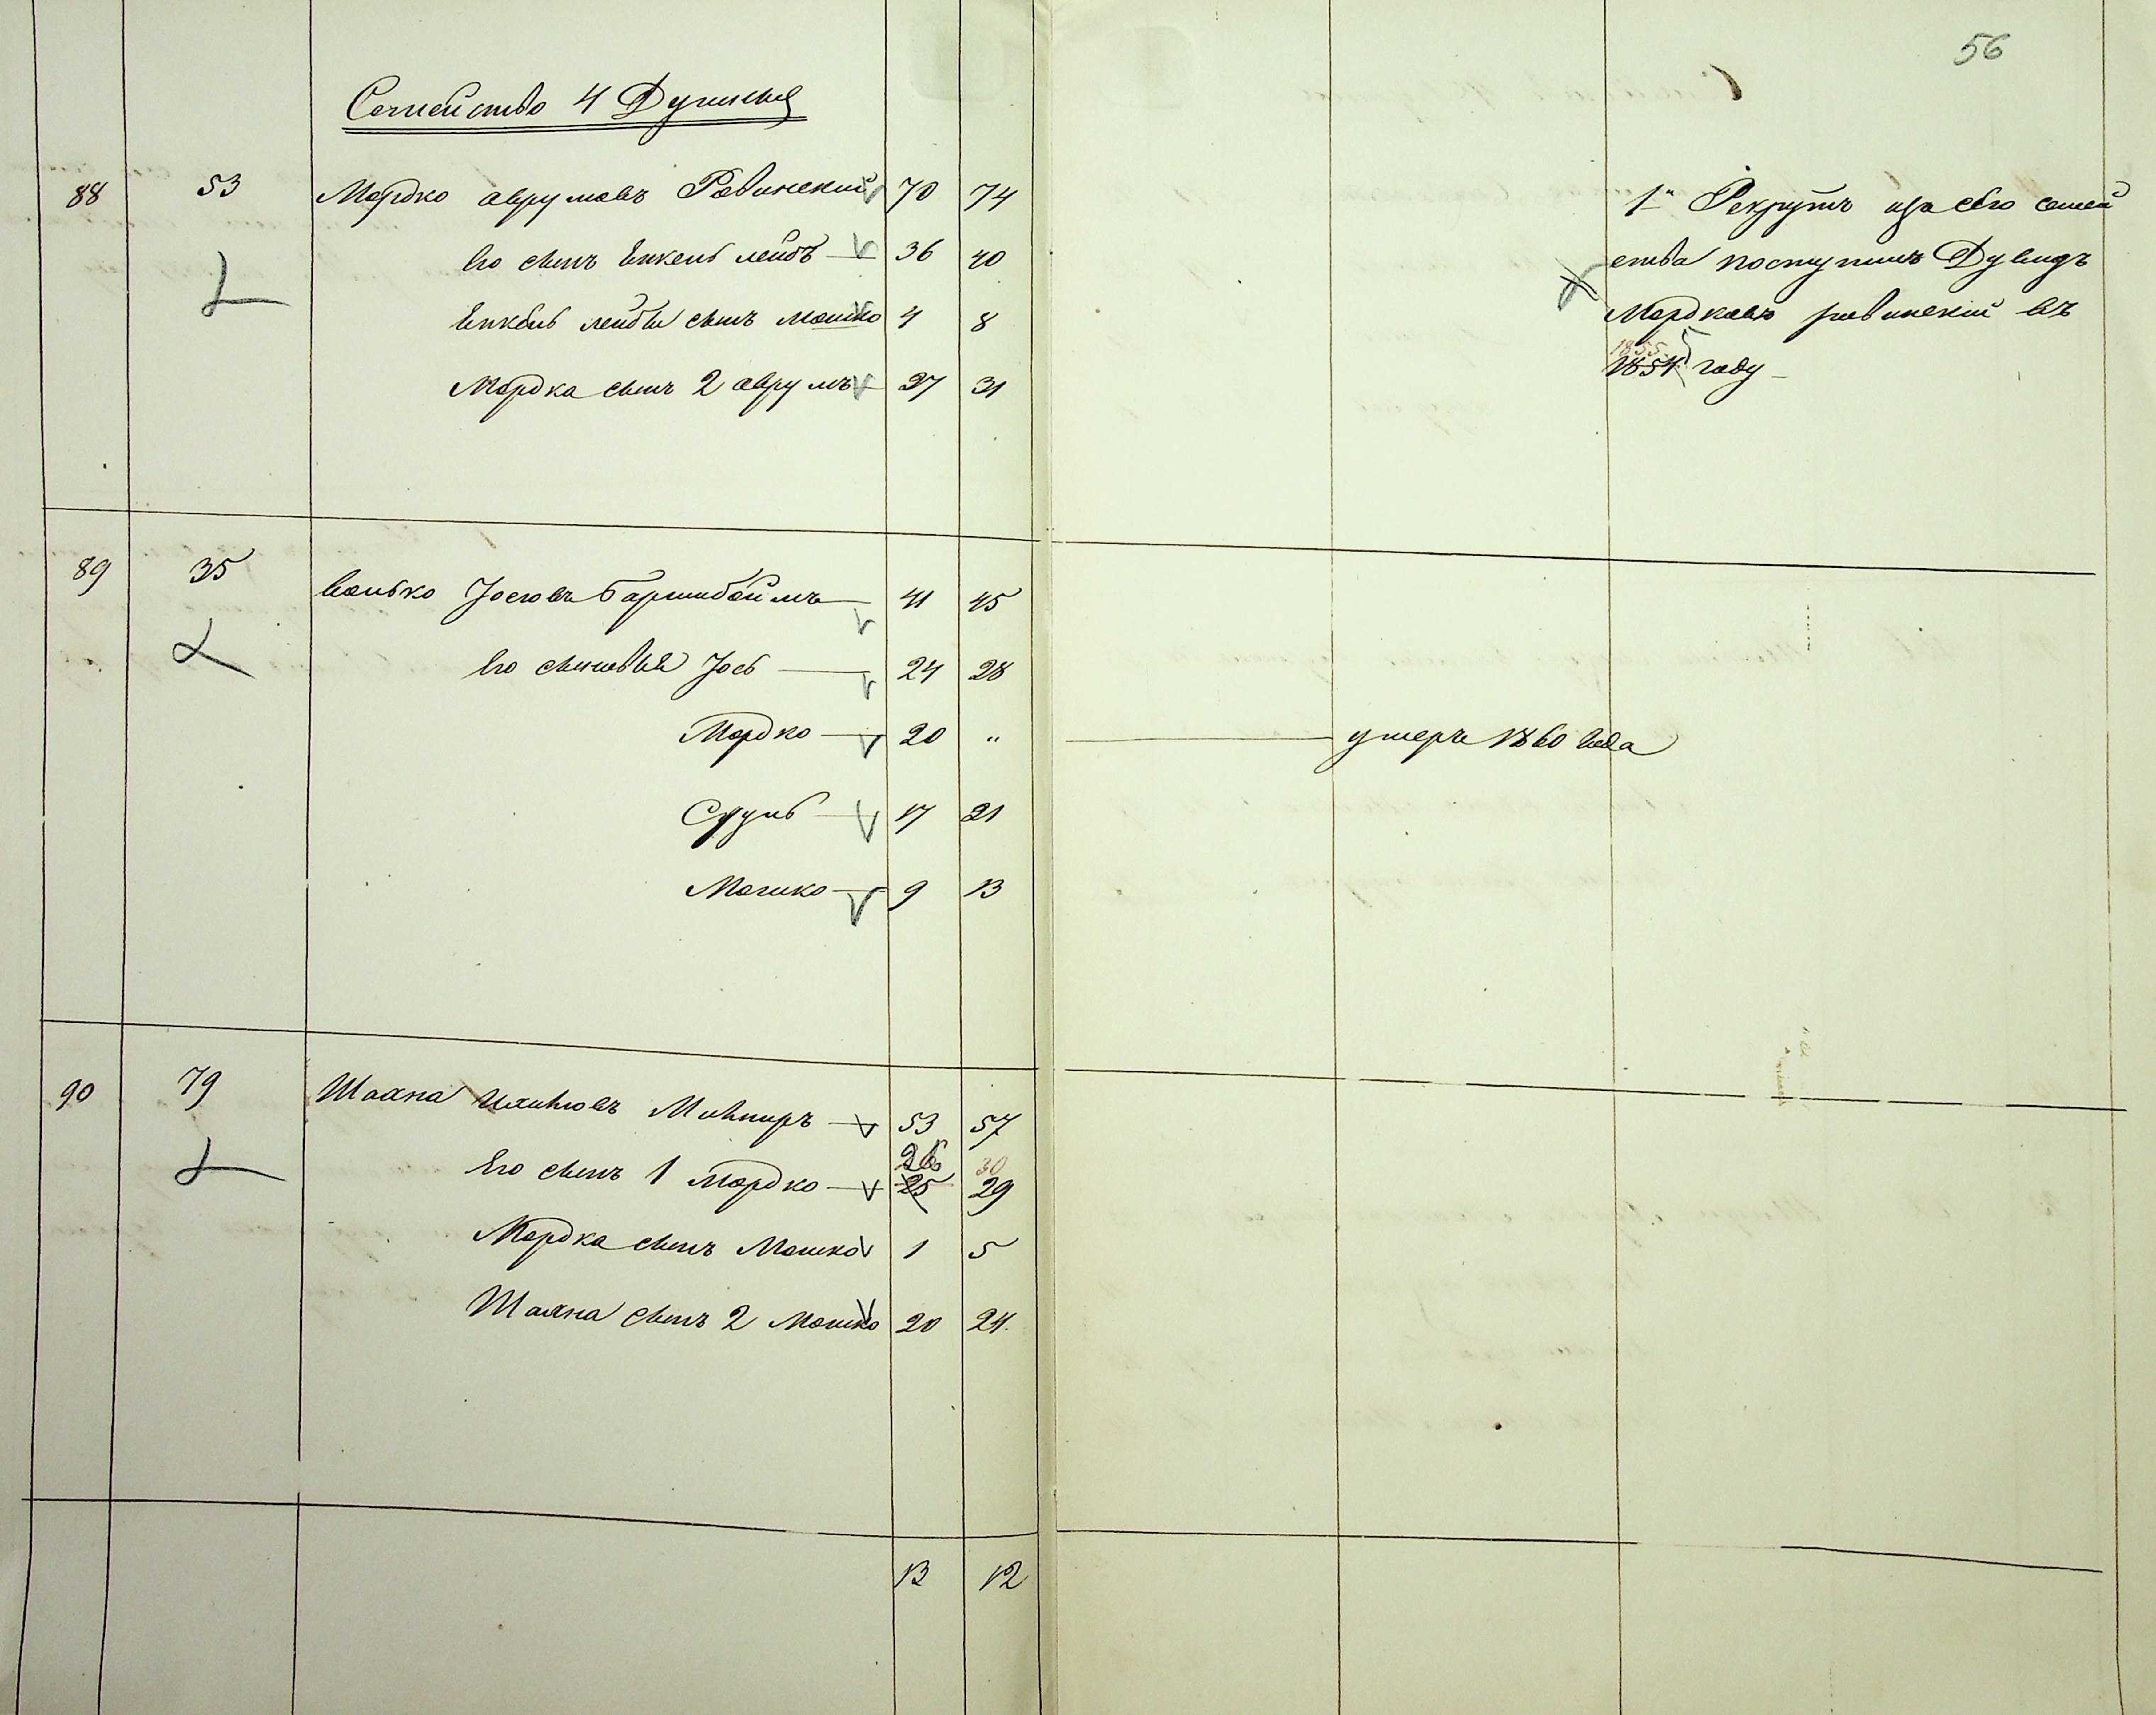 56
Семейство 4 Душныя
88 53 Мордко Аврумовъ Ровинский 70 74
Его сынъ Янкель Лейбъ 36 40
Янкель Лейбы сынъ Мошко 4 8
Мордка сынъ 2 Аврумъ 27 31
1й Рекрутъ изъ сего семей
ства поступилъ Дувидъ
Мордковъ Ровинский въ
1855
1854 году
89 35 Іосіовъ 41 45
Его сыновья Іось 24 28
Мордко 20 „ умеръ 1860 года
Сруль 17 21
Мошко 9 13
90 79 Шахна 53 57
26 30
Его сынъ 1 Мордко 25 29
Мордка сынъ Мошко 1 5
Шахна сынъ 2 Мошко 20 24
13 12